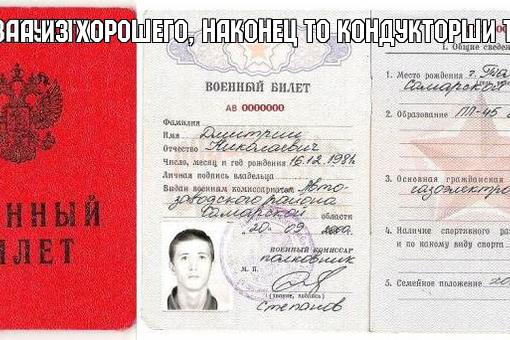 ИЗ ХОРОШЕГО, НАКОНЕЦ ТО КОНДУКТОРШИ Т
ЕННЫЙ
ИЛЕТ
ВОЕННЫЙ БИЛЕТ
АВ 0000000
Фамилия
Имя Дмитрий
Отчество Николаевич
Число, месяц и год рождения 16.12.198
Личная подпись владельца
Выдан военным комиссариатом Авто-
заводского района
Самарской области
20 09
ВОЕННЫЙ КОМИССАР
полковник
М. П.
(звание, подпись)
Степанов
I. Общие сведен
1. Место рождения г. То
Самарской
2. Образование ПЛ-45
3. Основная гражданская
газоэлектро
4. Наличие спортивного раз
и по какому виду спорта
5. Семейное положение хо